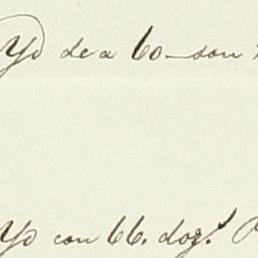 Yd de a 60 son
Yd con 66. dog.